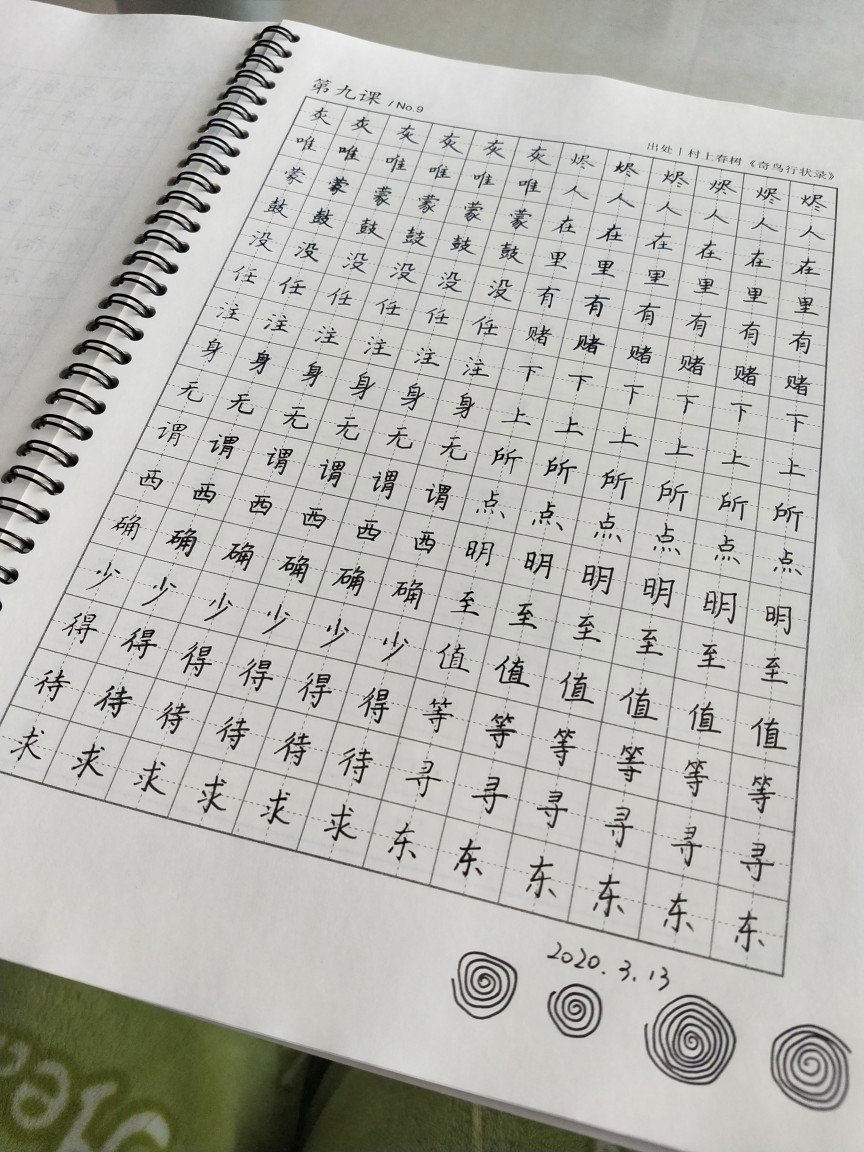 第九课 / No.9
出处丨村上春树《奇鸟行状录》
灰灰灰灰灰灰烬烬烬烬烬烬
唯唯唯唯唯唯人人人人人人
蒙蒙蒙蒙蒙蒙在在在在在在
鼓鼓鼓鼓鼓鼓里里里里里里
没没没没没没有有有有有有
任任任任任任赌赌赌赌赌赌
注注注注注注下下下下下下
身身身身身身上上上上上上
无无无无无无所所所所所所
谓谓谓谓谓谓点点点点点点
西西西西西西明明明明明明
确确确确确确至至至至至至
少少少少少少值值值值值值
得得得得得得等等等等等等
待待待待待待寻寻寻寻寻寻
求求求求求求东东东东东东
2020.3.13